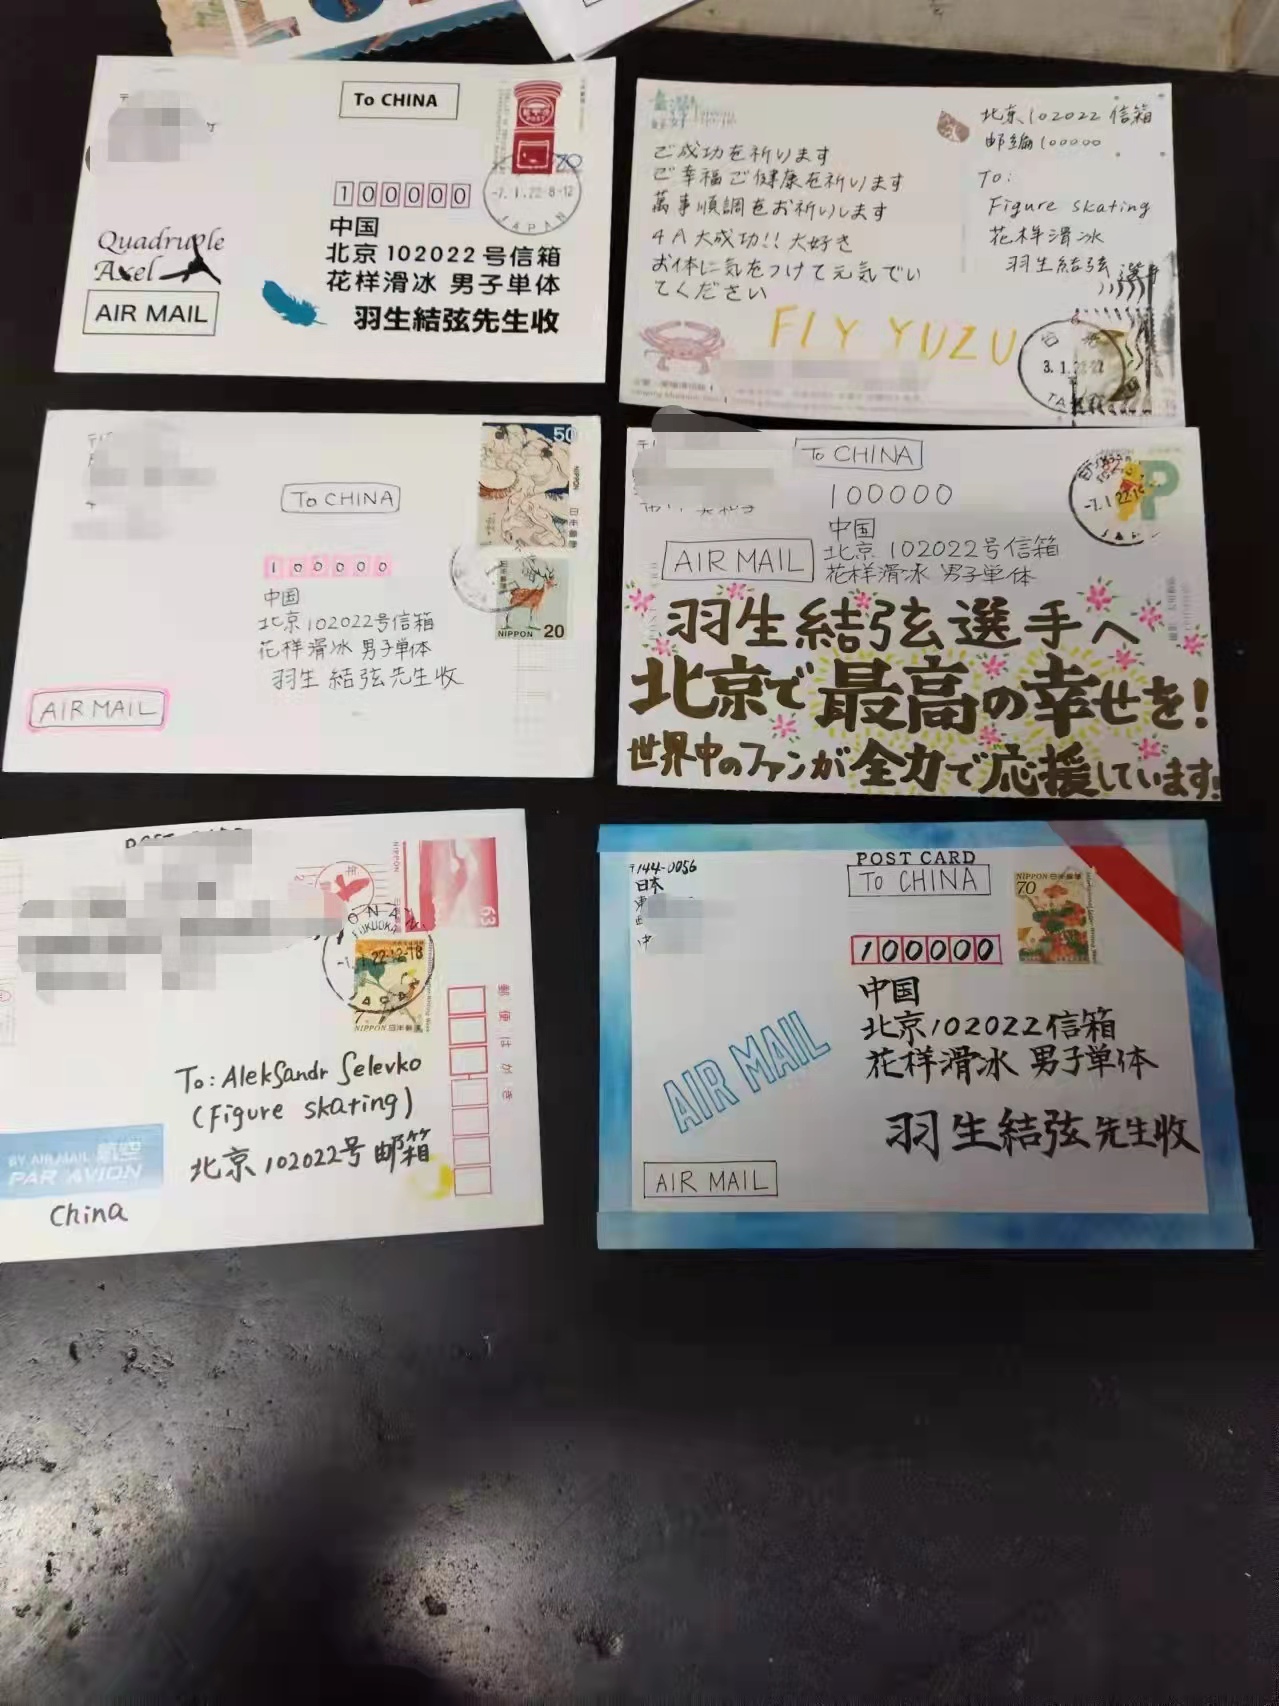 To CHINA
100000
中国
北京102022号信箱
花样滑冰 男子単体
羽生結弦先生收
Quadruple
Axel
AIR MAIL
-7.1.22 8-12
JAPAN
北京102022信箱
邮编100000
To:
Figure skating
花样滑冰
羽生結弦 選手
ご成功を祈ります
ご幸福ご健康を祈ります
萬事順調をお祈りします
4A大成功!! 大好き
お体に気をつけて元気でい
てください
FLY YUZU
50
NIPPON
日本郵便
NIPPON 20
To CHINA
100000
中国
北京102022号信箱
花样滑冰 男子単体
羽生 結弦先生收
AIR MAIL
To CHINA
100000
中国
北京 102022号信箱
花样滑冰 男子単体
AIR MAIL
羽生結弦選手へ
北京で最高の幸せを!
世界中のファンが全力で応援しています!
NIPPON
63
FUKUOKA
-7.1.22.12-18
NIPPON 日本郵便
郵便はがき
To: Aleksandr Selevko
(Figure skating)
北京102022号邮箱
BY AIR MAIL 航空
PAR AVION
China
〒144-0056
日本
POST CARD
To CHINA
NIPPON 日本郵便
70
100000
中国
北京102022信箱
花样滑冰 男子単体
羽生結弦先生收
AIR MAIL
AIR MAIL